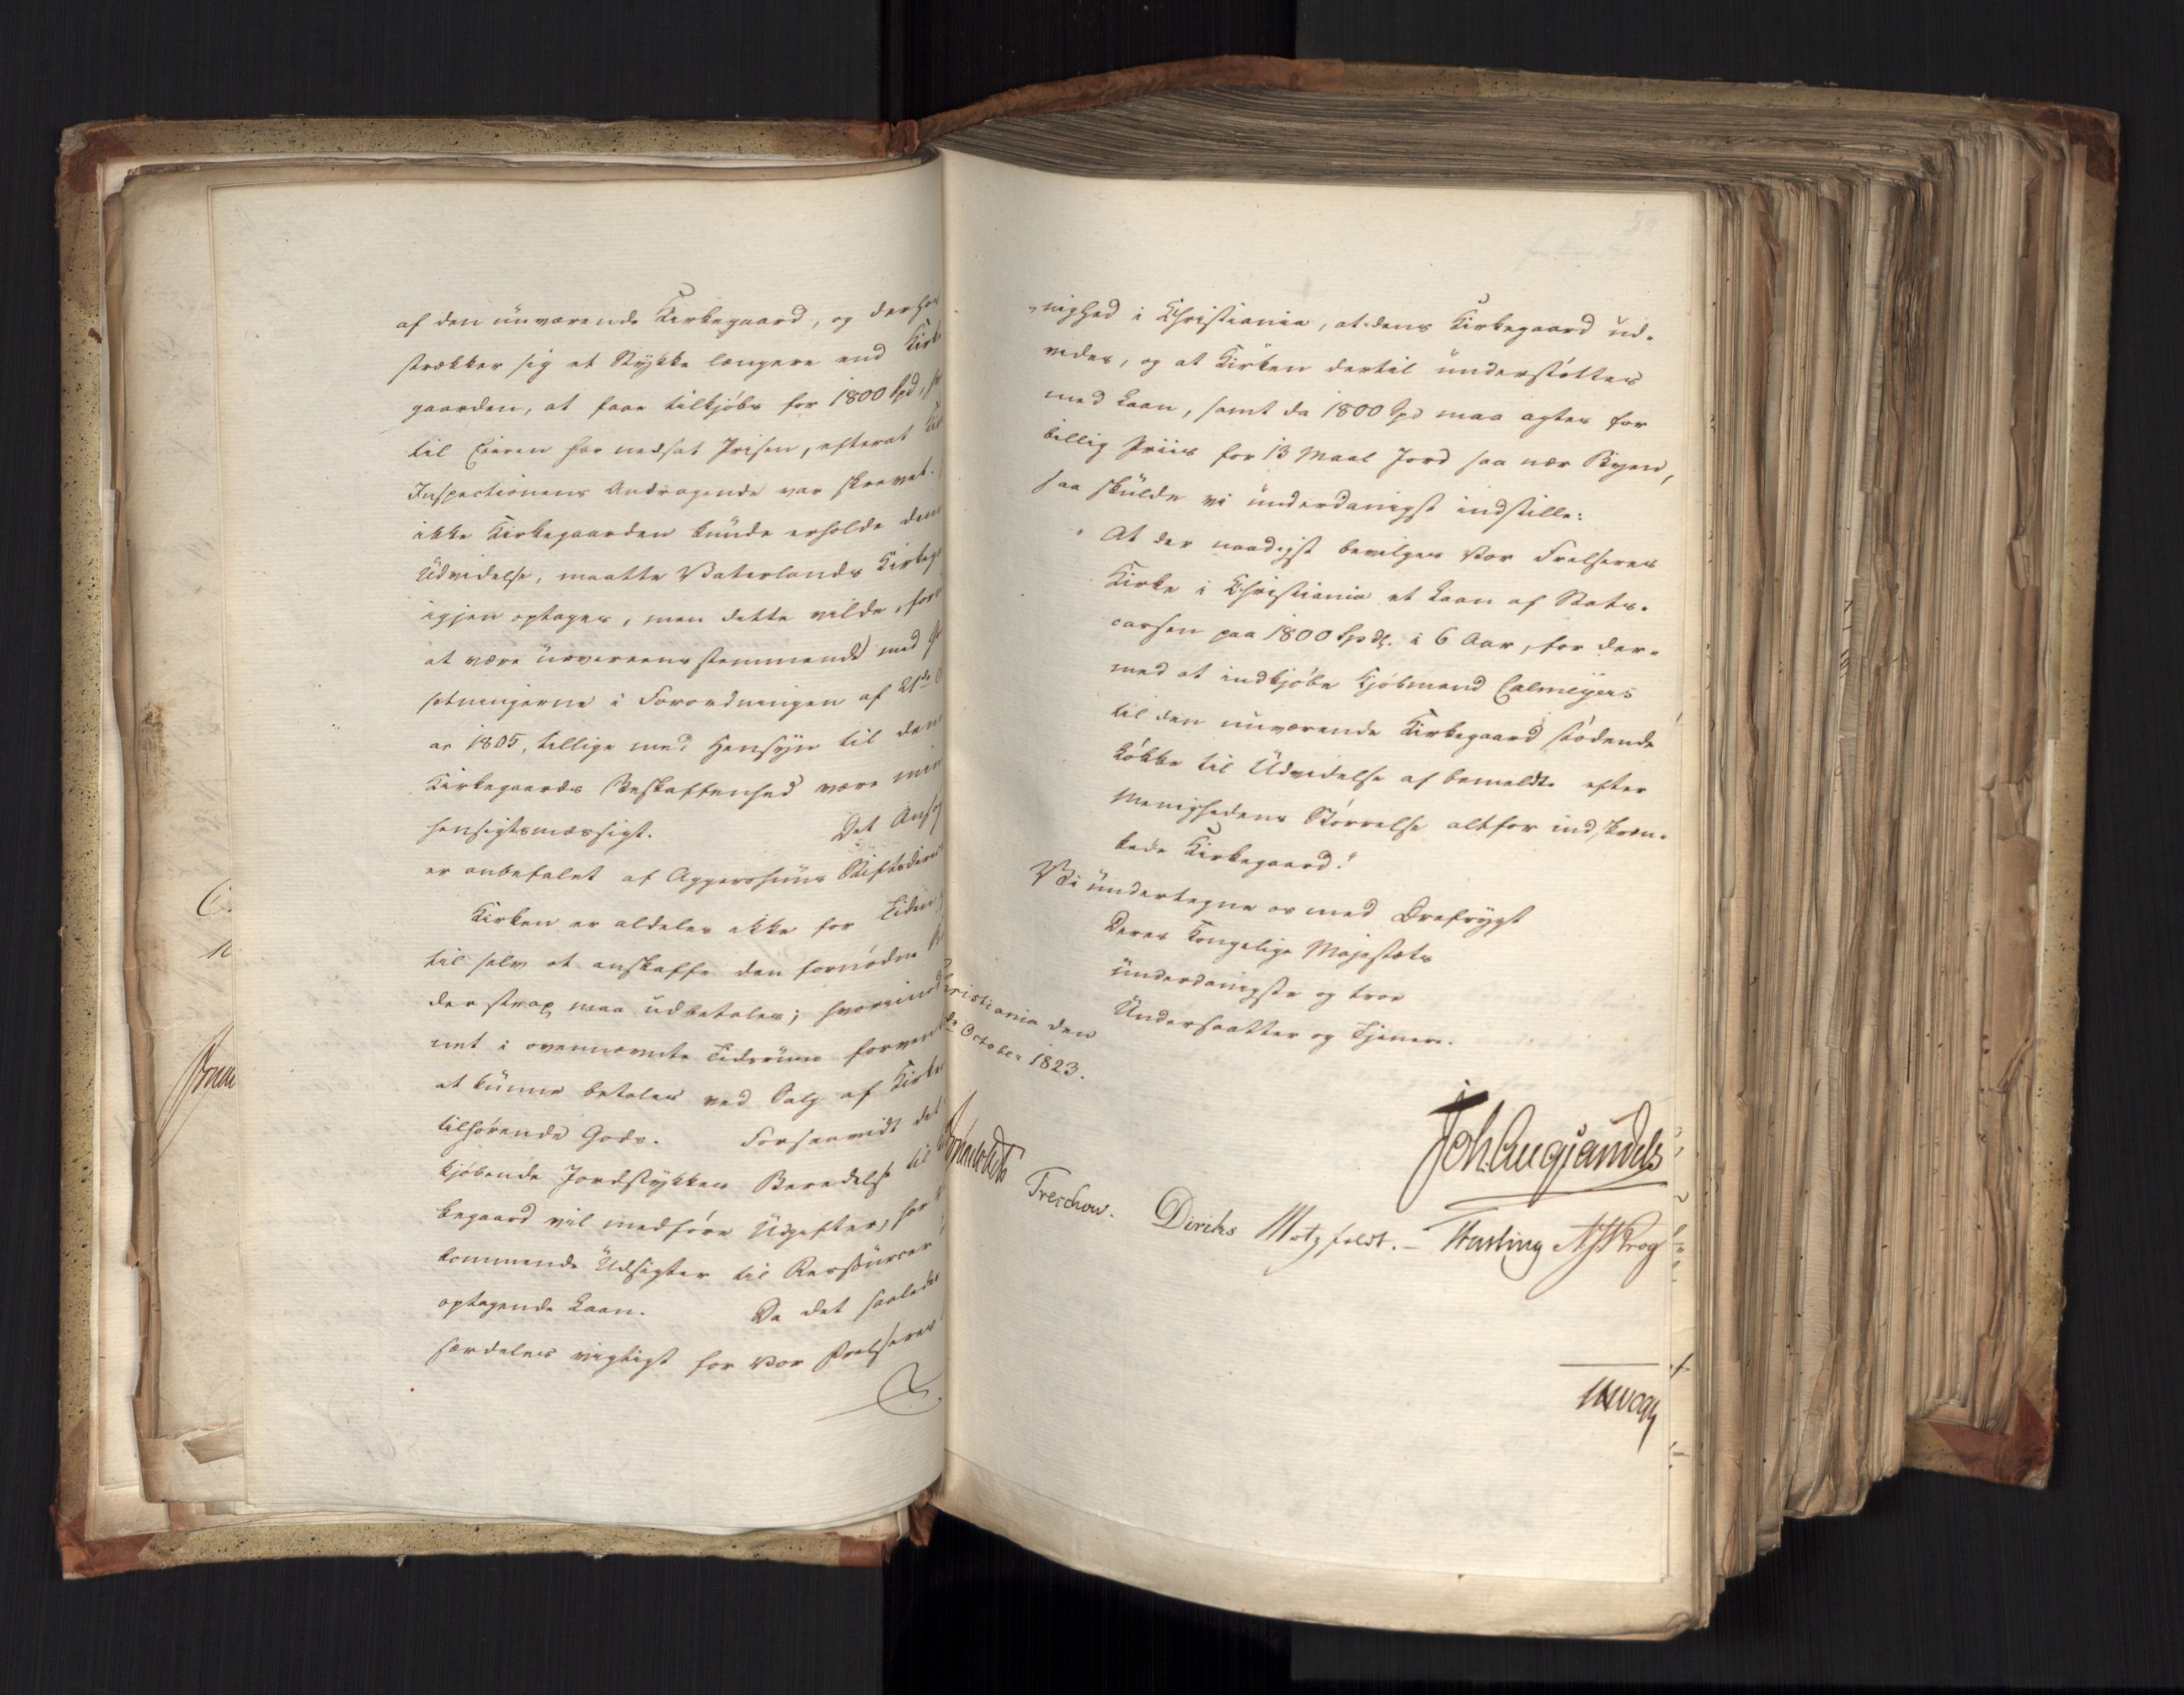 af den nuværende Kirkegaard, og derhos
strækker sig et Stykke længere end Kirke
gaarden, at faae tilkjøbs for 1800 Spd,
til Eieren har nedsat Prisen, efterat
Inspectionens Andragende var skrevet.
ikke Kirkegaarden kunde erholde denne
Udvidelse, maatte Vaterlands Kirkeg
igjen optages, men dette vilde, for
at være uovereensstemmende med
sætningerne i Forordningen af 21de
ar 1805, tillige med Hensyn til denne
Kirkegaards Beskaffenhed være min
hensigtsmæssigt. Det Ansøg
er anbefalet af Aggershuus Stiftsdirec
Kirken er aldeles ikke for Tiden
til selv at anskaffe den fornødne
der strax maa udbetales; hvorimod
net i ovennævnte Tidsrum forven
at kunne betales ved Salg af Kirken
tilhørende Gods. Forsaavidt det
kjøbende Jordstykkes Beredelse til
kegaard vil medføre Udgifter, for
kommende Udsigter til Ressourcer
optagende Laan. Da det saaledes
særdeles vigtigt for Vor Frelseres
nighed i Christiania, at dens Kirkegaard ud-
vides, og at Kirken dertil understøttes
med Laan, samt da 1800 Spd maa agtes for
billig Priis for 13 Maal Jord saa nær Byen,
saa skulde vi underdanigst indstille:
"At der naadigst bevilges Vor Frelseres
Kirke i Christiania et Laan af Stats-
cassen paa 1800 Spdlr. i 6 Aar, for der-
med at indkjøbe Kjøbmand Calmeyers
til den nuværende Kirkegaard stødende
Løkke til Udvidelse af bemeldte efter
Menighedens Størrelse altfor indskræn-
kede Kirkegaard."
Vi undertegne os med Ærefrygt
Deres Kongelige Majestæts
underdanigste og troe
Undersaatter og Tjenere.
Christiania den
de October 1823.
Joh. Aug. Sandels
Sommerhielm Treschow. Diriks Motzfeldt. – Fasting A J Krog
Vogt